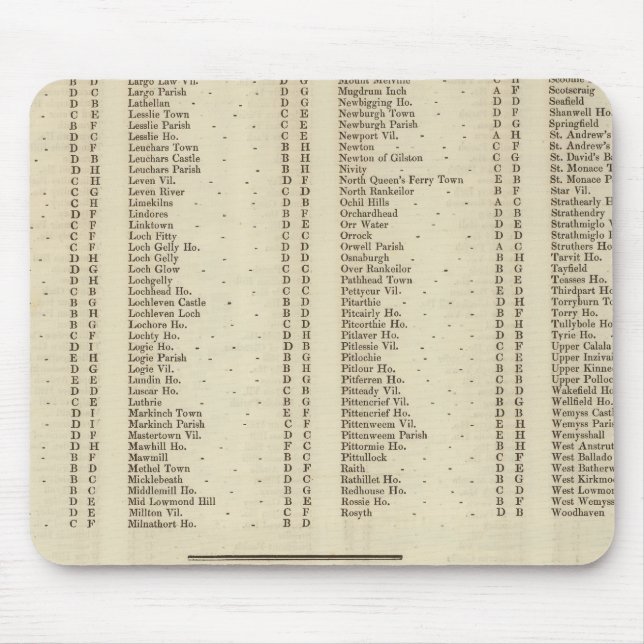 B D
D C
D B
C E
B F
D C
D F
D B
D H
C H
C G
C H
D F
C F
C F
D H
D G
D H
C B
B G
B H
B G
C F
D I
E H
D G
E E
D D
C E
D I
D I
D F
D H
B F
B D
B C
B C
D E
D E
C F
Largo Law Vil. - - D G
Largo Parish - - D G
Lathellan - - D G
Lesslie Town - - C E
Lesslie Parish - - C E
Lesslie Ho. - - C E
Leuchars Town - - B H
Leuchars Castle - - B H
Leuchars Parish - - B H
Leven Vil. - - D F
Leven River - - C D
Limekilns - - D B
Lindores - - B F
Linktown - - D E
Loch Fitty - - C C
Loch Gelly Ho. - - D D
Loch Gelly - - D D
Loch Glow - - C C
Lochgelly - - D D
Lochhead Ho. - - E D
Lochleven Castle - B D
Lochleven Loch - B D
Lochore Ho. - - C D
Lochty Ho. - - C D
Logie Ho. - - D B
Logie Parish - - B G
Logie Vil. - - B H
Lundin Ho. - - D G
Luscar Ho. - - C A
Luthrie - - B G
Markinch Town - E F
Markinch Parish - C F
Mastertown Vil. - D C
Mawhill Ho. - - F C
Mawmill - - B C
Methel Town - - D F
Micklebeath - - D C
Middlemill Ho. - B G
Mid Lowmond Hill - B E
Millton Vil. - - C F
Milnathort Ho. - B D
Mount Melville - - C H
Mugdrum Inch - - A F
Newbigging Ho. - - D D
Newburgh Town - - D F
Newburgh Parish - - D G
Newport Vil. - - A H
Newton - - C F
Newton of Gilston - - C G
Nivity - - C D
North Queen's Ferry Town E B
North Rankeilor - - B F
Ochil Hills - - A C
Orchardhead - - D B
Orr Water - - D D
Orrock - - D D
Orwell Parish - - A C
Osnaburgh - - B H
Over Rankeilor - - B G
Pathhead Town - - D E
Pettycur Vil. - - E D
Pitarthie - - D H
Pitcairly Ho. - - B F
Pitcorthie Ho. - - D H
Pitlaver Ho. - - D B
Pitlessie Vil. - - C F
Pitlochie - - C E
Pitlour Ho. - - B E
Pitferren Ho. - - C B
Pitteady Ho. - - D D
Pittencrief Vil. - - B G
Pittencrief Ho. - - D B
Pittenweem Vil. - - E H
Pittenweem Parish - - E H
Pittormie Ho. - - B H
Pittullock - - C F
Raith - - D E
Rathillet Ho. - - B G
Redhouse Ho. - - C D
Rossie Ho. - - B F
Rosyth - - D B
Scoonie
Scotscraig
Seafield
Shanwell Ho.
Springfield
St. Andrew's
St. Andrew's
St. David's Ba
St. Monace T
St. Monace P
Star Vil.
Strathearly H
Strathendry
Strathmiglo V
Strathmiglo
Struthers Ho.
Tarvit Ho.
Tayfield
Teasses Ho.
Thirdpart Ho
Torryburn To
Torry Ho.
Tullybole Ho
Tyrie Ho.
Upper Calala
Upper Inzivai
Upper Kinne
Upper Polloc
Wakefield Ho
Wellfield Ho.
Wemyss Castl
Wemyss Paris
Wemysshall
West Anstrut
West Ballado
West Batherw
West Kirkmo
West Lowmo
West Wemyss
Woodhaven